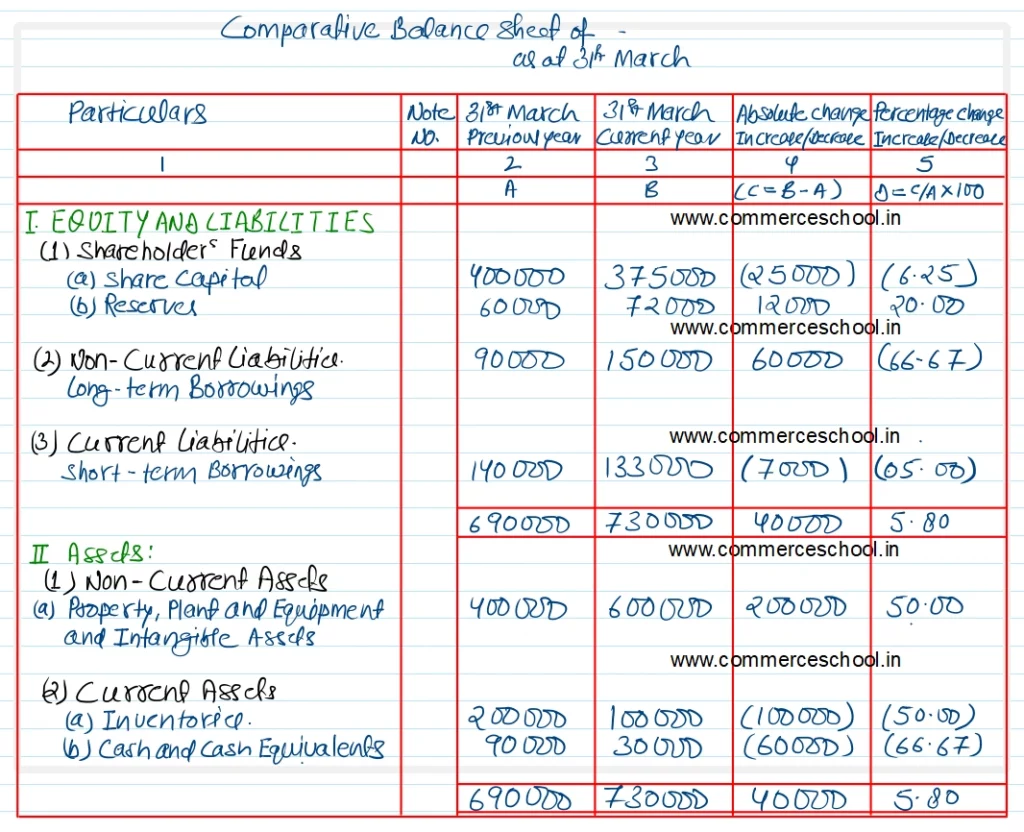 Comparative Balance Sheet of -
as at 31st March
Particulars Note No. 31st March Previous year 31st March Current year Absolute change Increase/Decrease Percentage change Increase/Decrease
1 2 3 4 5
A B (C = B - A) D = C/A × 100
I. EQUITY AND LIABILITIES www.commerceschool.in
(1) Shareholders Funds
(a) Share Capital 400000 375000 (25000) (6.25)
(b) Reserves 60000 72000 12000 20.00
www.commerceschool.in
(2) Non-Current Liabilities. 90000 150000 60000 (66.67)
Long-term Borrowings
(3) Current Liabilities. www.commerceschool.in
Short-term Borrowings 140000 133000 (7000) (05.00)
690000 730000 40000 5.80
II Assets: www.commerceschool.in
(1) Non-Current Assets
(a) Property, Plant and Equipment 400000 600000 200000 50.00
and Intangible Assets
www.commerceschool.in
(2) Current Assets
(a) Inventories. 200000 100000 (100000) (50.00)
(b) Cash and Cash Equivalents 90000 30000 (60000) (66.67)
690000 730000 40000 5.80